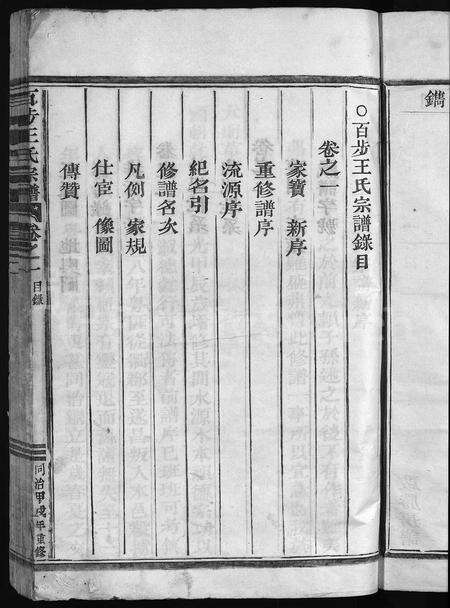 鐫
○百步王氏宗譜錄目
卷之一
家寶 新序
重修譜序
流源序
紀名引
修譜名次
凡例 家規
仕宦 像圖
傳贊
百步王氏宗譜 卷之一 目錄 同治甲戌年重修